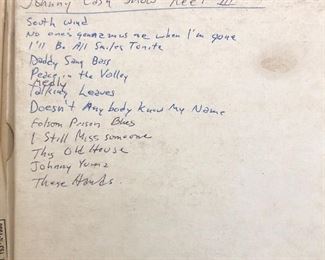 Johnny Cash Show Reel III
South Wind
No one's gonna miss me when I'm gone
I'll Be All Smiles Tonite
Daddy Sang Bass
Peace in the Valley
Medly
Talking Leaves
Doesn't Anybody Know My Name
Folsom Prison Blues
I Still Miss someone
This Old House
Johnny Yuma
These Hands